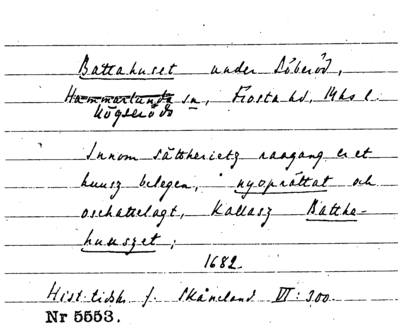 Battahuset under Löberöd,
Hammarlunda sn, Frosta hd, Mhs l.
Högseröds
Innom sätherietz raagang er et
huusz belegen, nyoprättat och
oschattelagt, kallasz Batthe-
huuszet;
1682.
Hist. tidskr. f. Skåneland VI: 300.
Nr 5553.